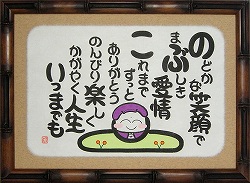 のどかな笑顔で
まぶしき愛情
これまでずっと
ありがとう
のんびり楽しく
かがやく人生
いつまでも